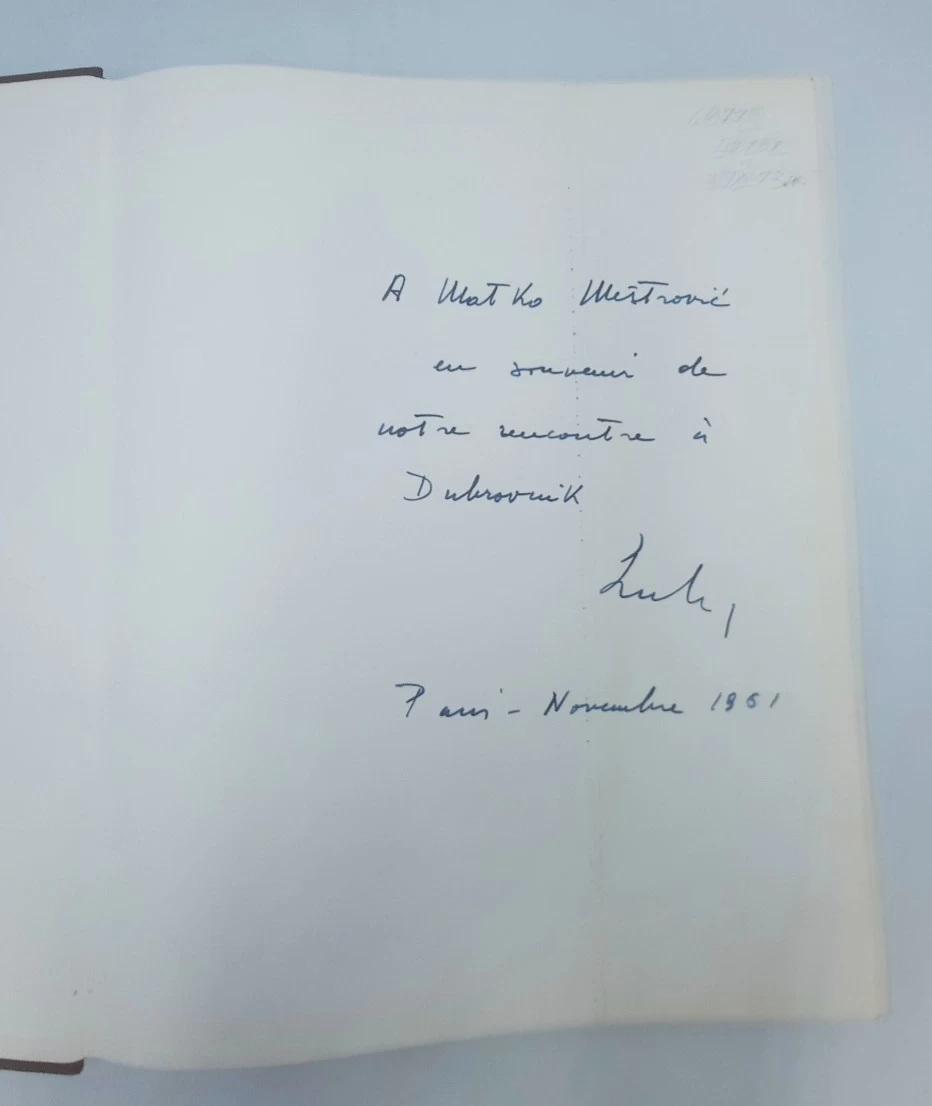 A Matko Meštrović
en souvenir de
notre rencontre à
Dubrovnik
Paris - Novembre 1961